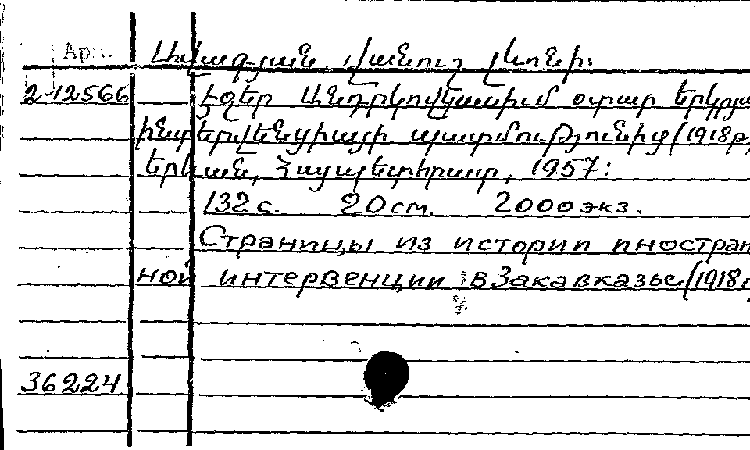 Арм.
Ավագյան, Վանուշ Լևոնի:
2-12566 Էջեր Անդրկովկասում օտար երկրյա
ինտերվենցիայի պատմությունից (1918թ
Երևան, Հայպետհրատ, 1957:
132 с. 20 см. 2000 экз.
Страницы из истории иностран
ной интервенции в Закавказье (1918г
36224